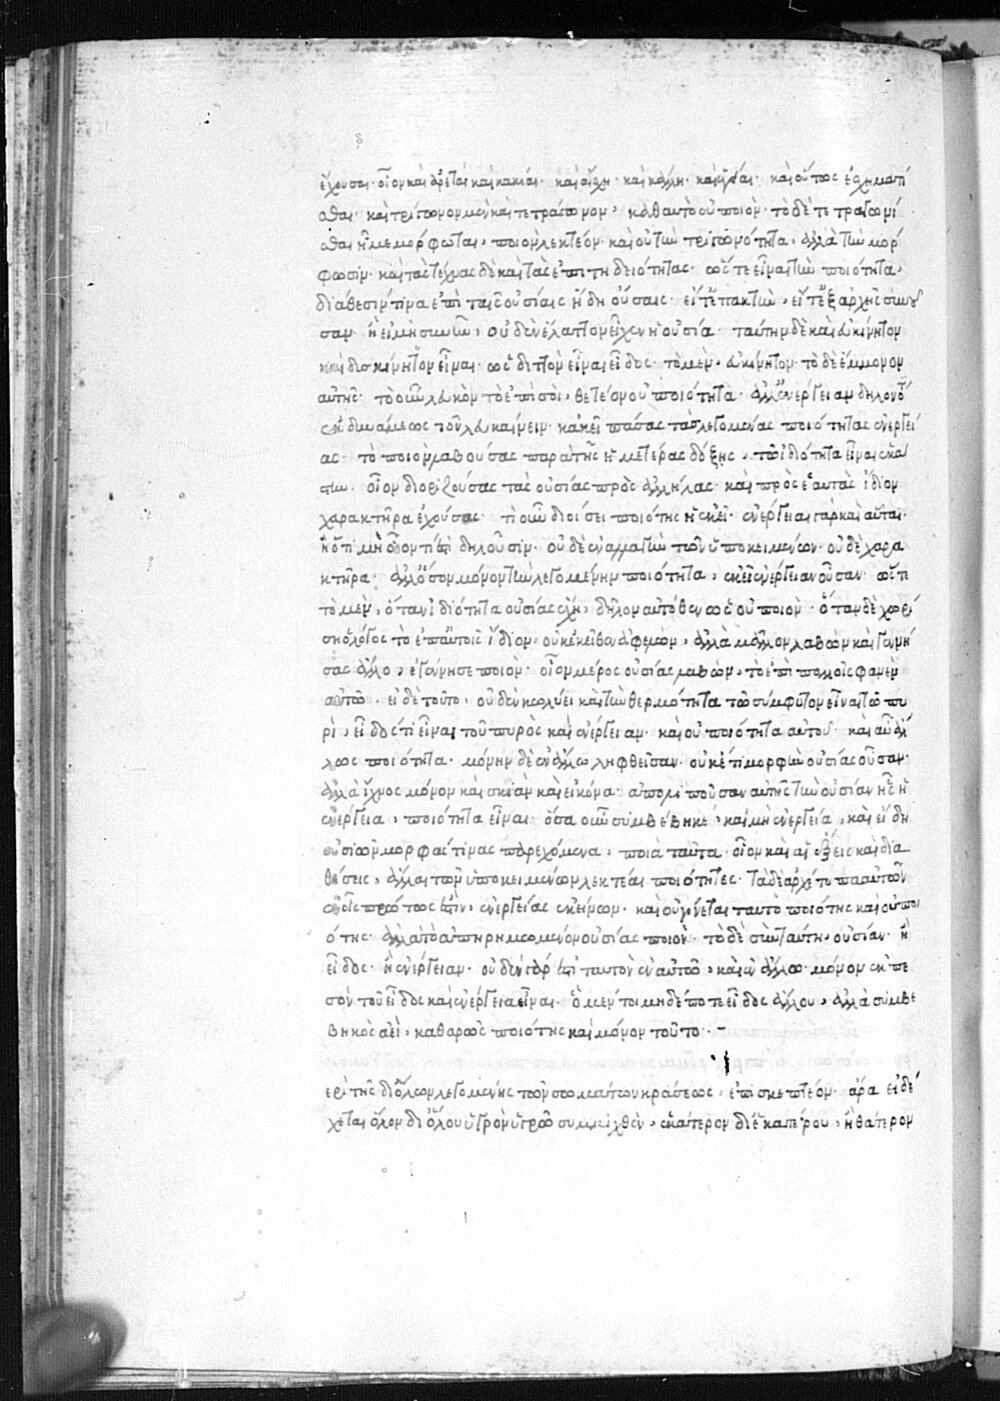 ἔχουσαι· οἷον καὶ ἀρεταὶ καὶ κακίαι· καὶ αἴσχη· καὶ κάλλη· καὶ ὑγίειαι· καὶ οὕτως ἐσχηματί
σθαι· καὶ τρίγωνον μὲν καὶ τετράγωνον, καθ αυτὸ οὐ ποιόν· τὸ δὲ τετραγωνί
σθαι ἢ μεμόρφωται, ποιὸν λεκτέον· καὶ οὐ τὴν τριγωνότητα, ἀλλὰ τὴν μόρ
φωσιν· καὶ τὰς τέχνας δὲ καὶ τὰς ἐπιτηδειότητας· ὥστε εἶναι τὴν ποιότητα,
διάθεσίν τινα ἐπὶ ταῖς οὐσίαις ἤδη οὔσαις· εἴτ' ἐπακτὴν, εἴτ' ἐξ ἀρχῆς συνοῦ
σαν· ἣ εἰ μὴ συνῆν, οὐδὲν ἔλαττον εἶχεν ἡ οὐσία· ταύτην δὲ καὶ εὐκίνητον
καὶ δυσκίνητον εἶναι· ὡς διττὸν εἶναι εἶδος· τὸ μὲν, εὐκίνητον· τὸ δὲ ἔμμονον
αὐτῆς· τὸ οὖν λευκὸν τὸ ἐπὶ σοὶ, θετέον οὐ ποιότητα· ἀλλ' ἐνέργειαν δηλονότι
ἐκ δυνάμεως τοῦ λευκαίνειν· κἀκεῖ πάσας τὰς λεγομένας ποιότητας ἐνεργεί
ας· τὸ ποιὸν λαβούσας παρὰ τῆς ἡμετέρας δόξης, τῶ ἰδιότητα εἶναι ἑκάσ
την· οἷον διοριζούσας τὰς οὐσίας πρὸς ἀλλήλας· καὶ πρὸς ἑαυτὰς ἴδιον
χαρακτῆρα ἐχούσας· τί οὖν διοίσει ποιότης ἡ ἐκεῖ· ἐνέργειαι γὰρ καὶ αὗται·
ἢ ὅτι μὴ οἷόν τί ἐστι δηλοῦσιν· οὐδὲ ἐναλλαγὴν τῶν ὑποκειμένων· οὐδὲ χαρα
κτῆρα· ἀλλ' ὅσον μόνον τὴν λεγομένην ποιότητα, ἐκεῖ ἐνέργειαν οὖσαν· ὥστε
τὸ μὲν, ὅταν ἰδιότητα οὐσίας ἔχη, δῆλον αὐτόθεν ὡς οὐ ποιόν· ὅταν δὲ χωρί
ση ὁ λόγος τὸ ἐπ αὐτοῖς ἴδιον, οὐκ ἐκεῖθεν ἀφελών, ἀλλὰ μᾶλλον λαβὼν καὶ γεννή
σας ἄλλο, ἐγέννησε ποιόν· οἷον μέρος οὐσίας λαβὼν, τὸ ἐπὶ πολλοῖς φανὲν
αὐτῶ· εἰ δὲ τοῦτο, οὐδὲν κωλύει καὶ τὴν θερμότητα τῶ σύμφυτον εἶναι τῶ πυ
ρὶ, εἶδός τι εἶναι τοῦ πυρὸς καὶ ἐνέργειαν· καὶ οὐ ποιότητα αὐτοῦ· καὶ αὖ ἄλ
λως ποιότητα· μόνην δὲ ἐν ἄλλω ληφθεῖσαν· οὐκέτι μορφὴν οὐσίας οὖσαν·
ἀλλὰ ἴχνος μόνον καὶ σκιὰν καὶ εἰκόνα· ἀπολιποῦσαν αὐτῆς τὴν οὐσίαν ἧς ἡ
ἐνέργεια, ποιότητα εἶναι· ὅσα οὖν συμβέβηκε, καὶ μὴ ἐνέργεια, καὶ εἴδη
οὐσιῶν μορφάς τινας παρεχόμενα, ποιὰ ταῦτα· οἷον καὶ αἱ ἕξεις καὶ δια
θέσεις, ἄλλαι τῶν ὑποκειμένων λεκτέαι ποιότητες· τὰ δὲ ἀρχέτυπα αὐτῶν
ἐν οἷς πρώτως ἐστὶν, ἐνεργείας ἐκείνων· καὶ οὐ γίνεται ταυτὸ ποιότης καὶ οὐ ποι
ότης· ἀλλὰ τὸ ἀπηρημωμένον οὐσίας ποιόν· τὸ δὲ σὺν ταύτη, οὐσίαν· ἢ
εἶδος· ἢ ἐνέργειαν· οὐδὲν γάρ ἐστι ταυτὸν ἐν αὐτῶ, καὶ ἐν ἄλλω μόνον ἐκπε
σὸν τοῦ εἶδος καὶ ἐνέργεια εἶναι· ὃ μέν τοι μηδέποτε εἶδος ἄλλου, ἀλλὰ συμβε
βηκὸς ἀεὶ, καθαρῶς ποιότης καὶ μόνον τοῦτο·
ερὶ τῆς δι' ὅλων λεγομένης τῶν σωμάτων κράσεως, ἐπισκεπτέον· ἆρα ἐνδέ
χεται ὅλον δι' ὅλου ὑγρὸν ὑγρῶ συμμιχθὲν, ἑκάτερον δι' ἑκατέρου, ἢ θάτερον